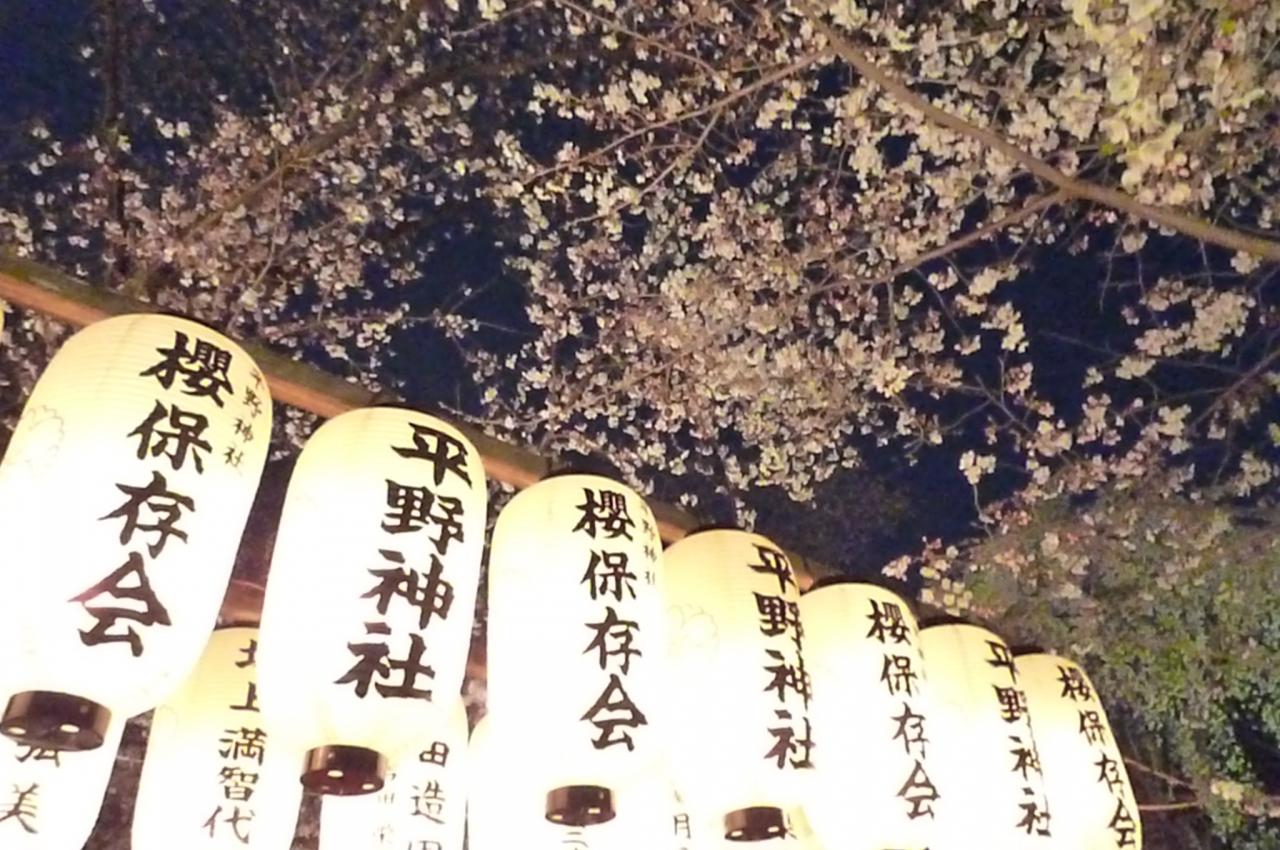 櫻保存会
平野神社
平野神社
櫻保存会
平野神社
櫻保存会
平野神社
櫻保存会
北上満智代
美
田造園
月